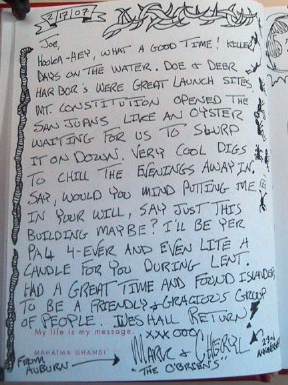 2/17/07
JOE,
HOOKA-HEY, WHAT A GOOD TIME! KILLER
DAYS ON THE WATER. DOE & DEER
HARBOR'S WERE GREAT LAUNCH SITES.
MT. CONSTITUTION OPENED THE
SAN JUANS LIKE AN OYSTER
WAITING FOR US TO SLURP
IT ON DOWN. VERY COOL DIGS
TO CHILL THE EVENINGS AWAY IN.
SAY, WOULD YOU MIND PUTTING ME
IN YOUR WILL, SAY JUST THIS
BUILDING MAYBE? I'LL BE YER
PAL 4-EVER AND EVEN LITE A
CANDLE FOR YOU DURING LENT.
HAD A GREAT TIME AND FOUND ISLANDERS
TO BE A FRIENDLY & GRACIOUS GROUP
OF PEOPLE. WE SHALL RETURN
My life is my message.
XXX OOO
MAHATMA GHANDI
MARK & CHERYL
"THE O'BRIEN'S"
FROM
AUBURN
23rd